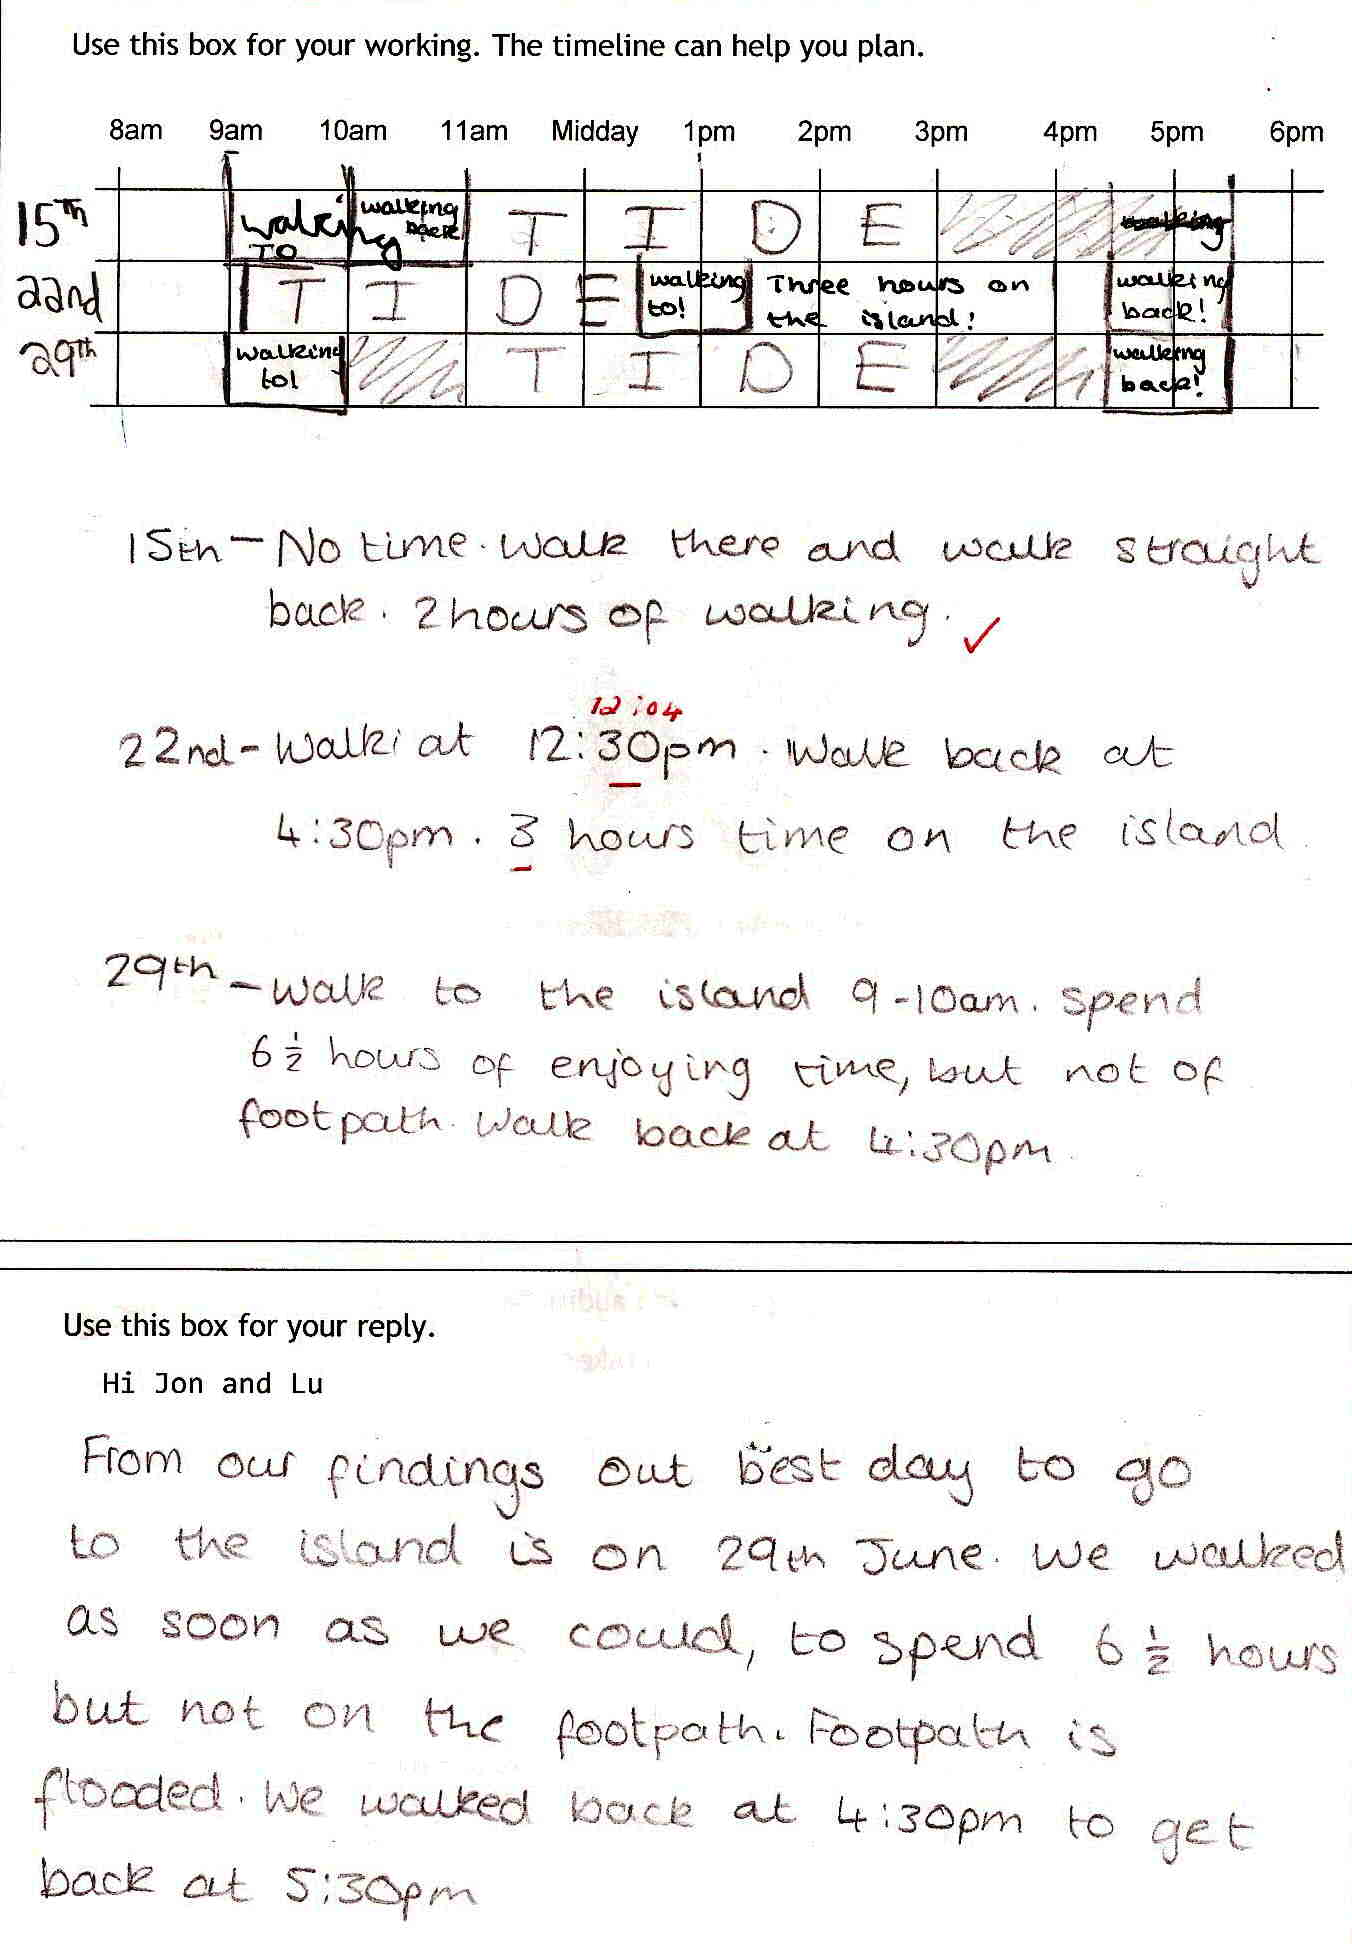 Use this box for your working. The timeline can help you plan.
8am 9am 10am 11am Midday 1pm 2pm 3pm 4pm 5pm 6pm
15th walking TO walking back T I D E walking
22nd T I D E walking to! Three hours on the island! walking back!
29th walking to! T I D E walking back!
15th - No time. Walk there and walk straight
back. 2 hours of walking. ✓
12:04
22nd - Walk at 12:30pm. Walk back at
4:30pm. 3 hours time on the island.
29th - Walk to the island 9-10am. Spend
6 ½ hours of enjoying time, but not of
footpath. Walk back at 4:30pm.
Use this box for your reply.
Hi Jon and Lu
From our findings out best day to go
to the island is on 29th June. We walked
as soon as we could, to spend 6 ½ hours
but not on the footpath. Footpath is
flooded. We walked back at 4:30pm to get
back at 5:30pm